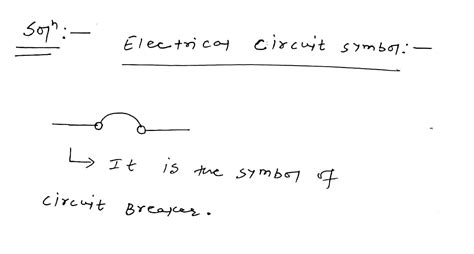 Solⁿ:—
Electrical Circuit symbol:—
It is the symbol of
circuit Breaker.